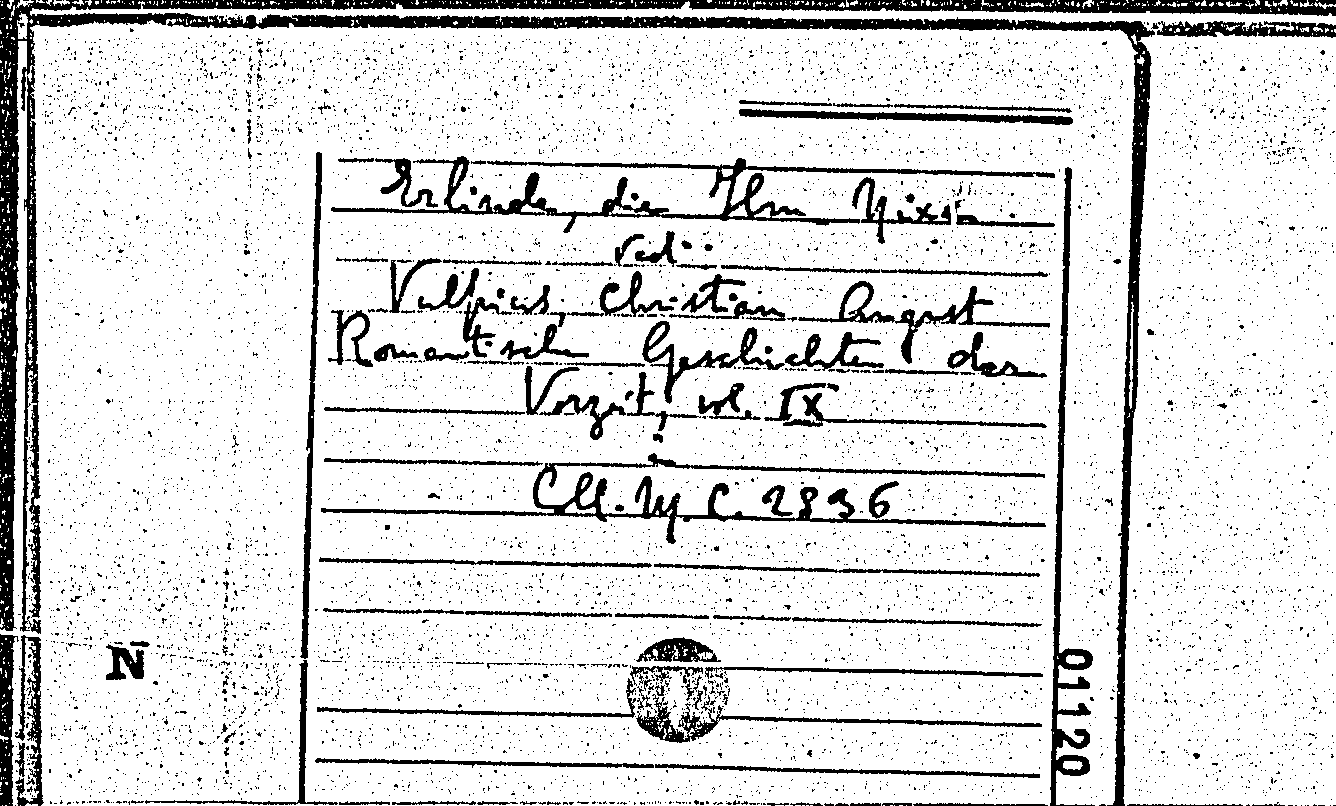 Erlinde, die Ilm Nixe
vedi:
Vulpius, Christian August
Romantische Geschichten der
Vorzeit, vol. IX
in
Coll. M. C. 2836
N
01120